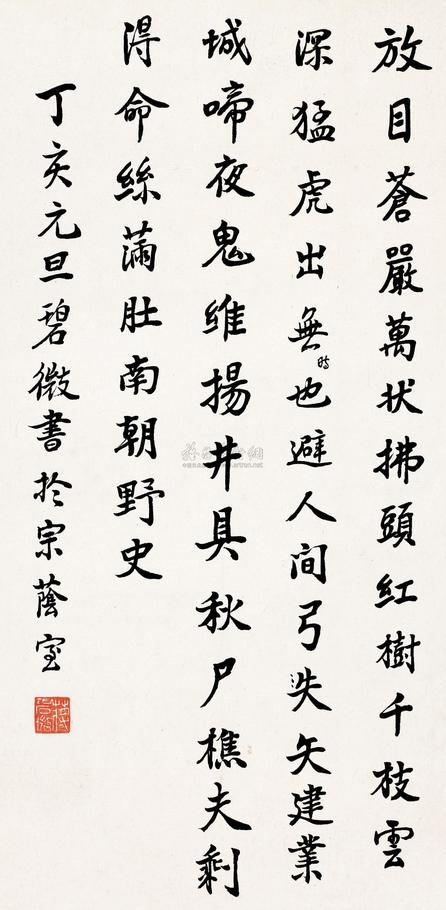 放目蒼嚴萬狀拂頭紅樹千枝雲
深猛虎出無時也避人间弓失矢建業
城啼夜鬼維揚井具秋尸樵夫剩
得命絲滿肚南朝野史
丁亥元旦碧微書於宗蔭室